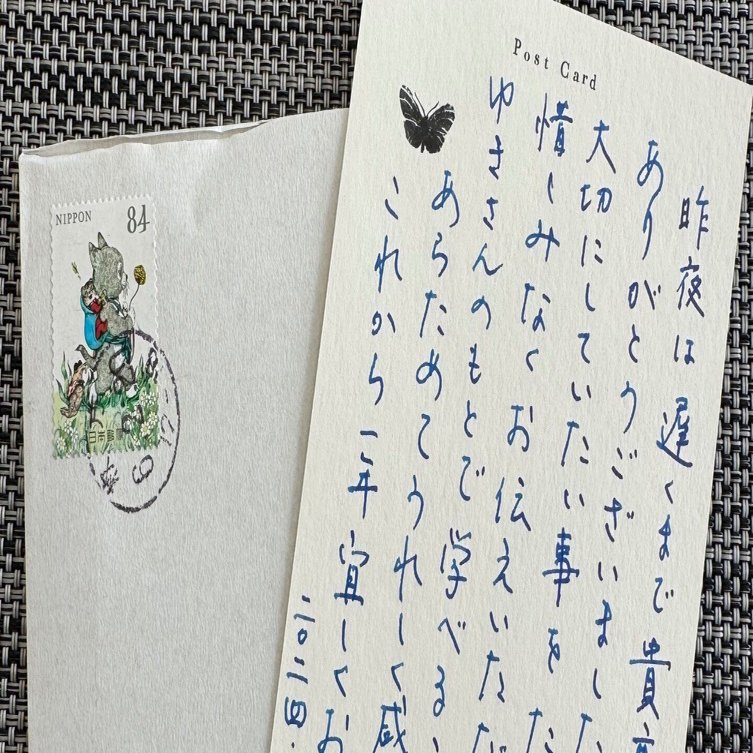 Post Card
昨夜は遅くまで貴重
ありがとうございました
大切にしていたい事をた
惜しみなくお伝えいただ
ゆきさんのもとで学べる
あらためてうれしく感
これから一年宜しくお
NIPPON 84
日本郵便